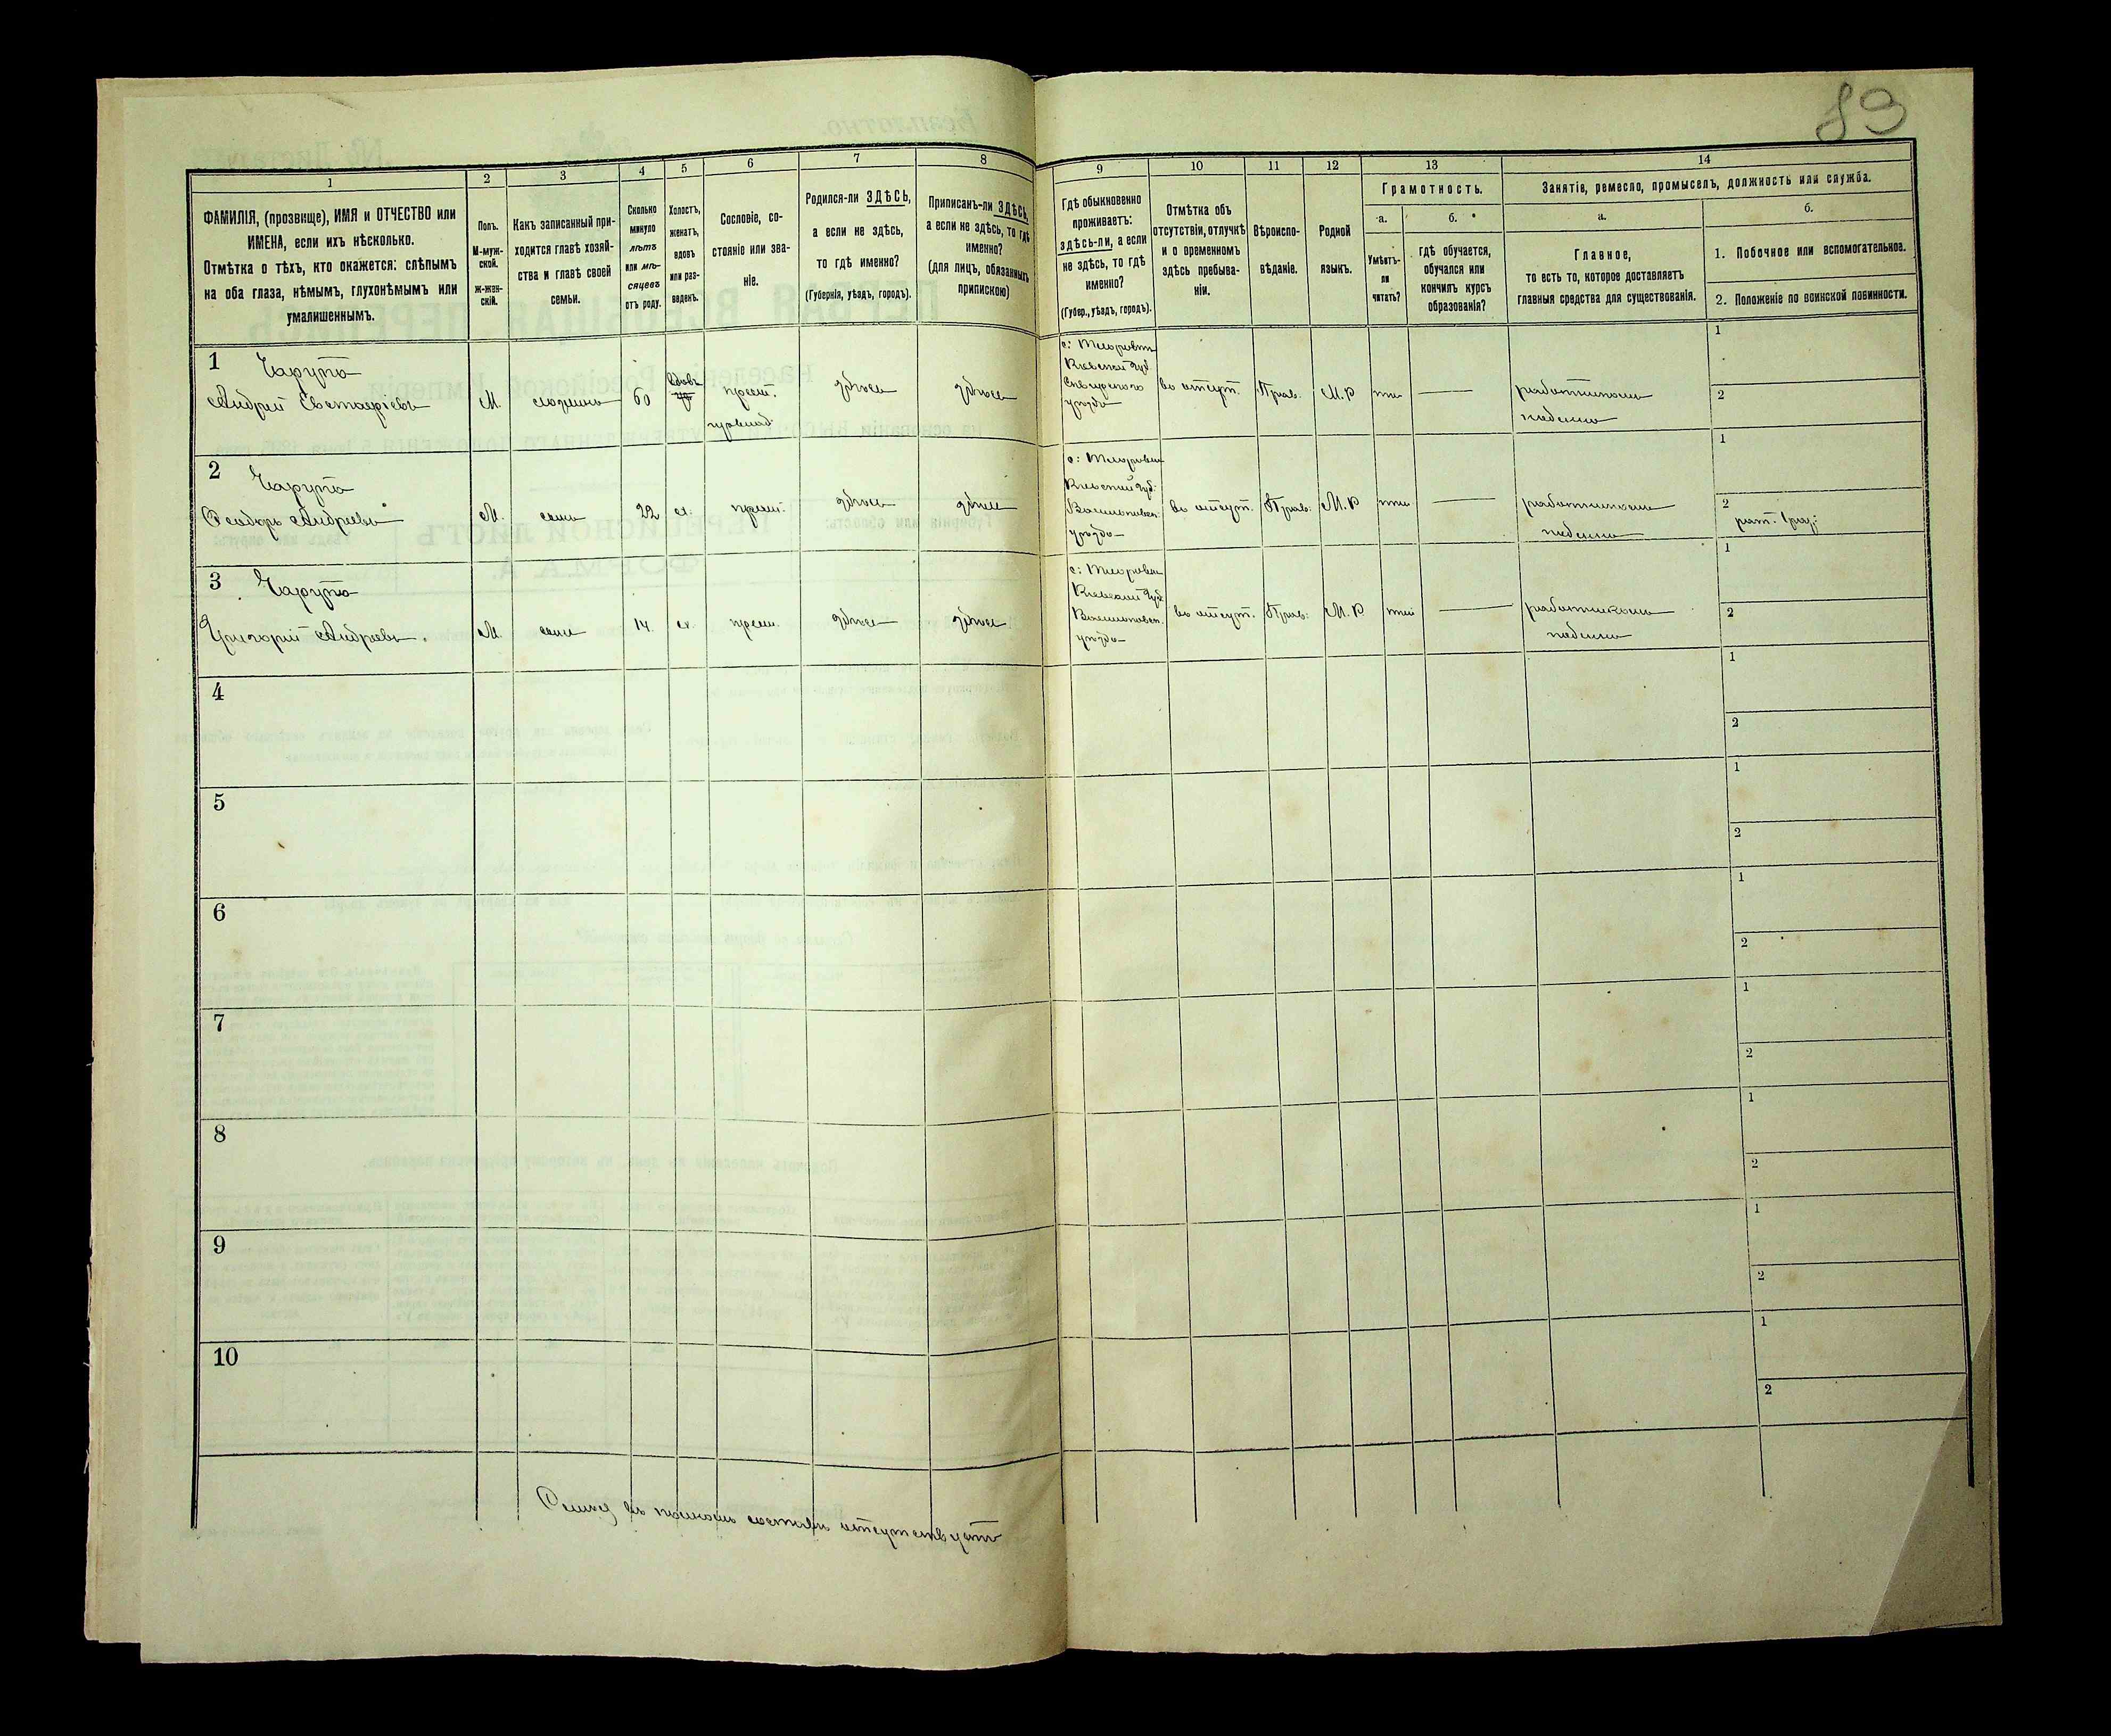 89
1
2
3
4
5
6
7
8
9
10
11
12
13
14
ФАМИЛІЯ, (прозвище), ИМЯ и ОТЧЕСТВО или
ИМЕНА, если ихъ нѣсколько.
Отмѣтка о тѣхъ, кто окажется: слѣпымъ
на оба глаза, нѣмымъ, глухонѣмымъ или
умалишеннымъ.
Полъ.
М-муж-
ской.
Ж-жен-
скій.
Какъ записанный при-
ходится главѣ хозяй-
ства и главѣ своей
семьи.
Сколько
минуло
лѣтъ
или мѣ-
сяцевъ
отъ роду.
Холостъ,
женатъ,
вдовъ
или раз-
веденъ.
Сословіе, со-
стояніе или зва-
ніе.
Родился-ли ЗДѢСЬ,
а если не здѣсь,
то гдѣ именно?
(Губернія, уѣздъ, городъ).
Приписанъ-ли ЗДѢСЬ,
а если не здѣсь, то гдѣ
именно?
(для лицъ, обязанныхъ
припискою)
Гдѣ обыкновенно
проживаетъ:
здѣсь-ли, а если
не здѣсь, то гдѣ
именно?
(Губер., уѣздъ, городъ).
Отмѣтка объ
отсутствіи, отлучкѣ
и о временномъ
здѣсь пребыва-
ніи.
Вѣроиспо-
вѣданіе.
Родной
языкъ.
Грамотность.
а.
Умѣетъ-
ли
читать?
б.
гдѣ обучается,
обучался или
кончилъ курсъ
образованія?
Занятіе, ремесло, промыселъ, должность или служба.
а.
Главное,
то есть то, которое доставляетъ
главныя средства для существованія.
б.
1. Побочное или вспомогательное.
2. Положеніе по воинской повинности.
1
Андрей
М.
60
вдовъ
крест.
здѣсь
здѣсь
Кіевской Губ
уѣзда
въ отсут.
Прав.
М.Р
нѣт
работникомъ
1
2
2
Феодоръ Андреевъ
М.
сынъ
22
х.
крест.
здѣсь
здѣсь
Кіевской Губ.
уѣзда
въ отсут.
Прав.
М.Р
нѣт
работникомъ
1
2
3
Григорій Андреевъ
М.
сынъ
14.
х.
крест.
здѣсь
здѣсь
Кіевской Губ
уѣзда
въ отсут.
Прав:
М.Р
нѣт
работникомъ
1
2
4
1
2
5
1
2
6
1
2
7
1
2
8
1
2
9
1
2
10
1
2
въ полномъ составѣ отсутствуетъ